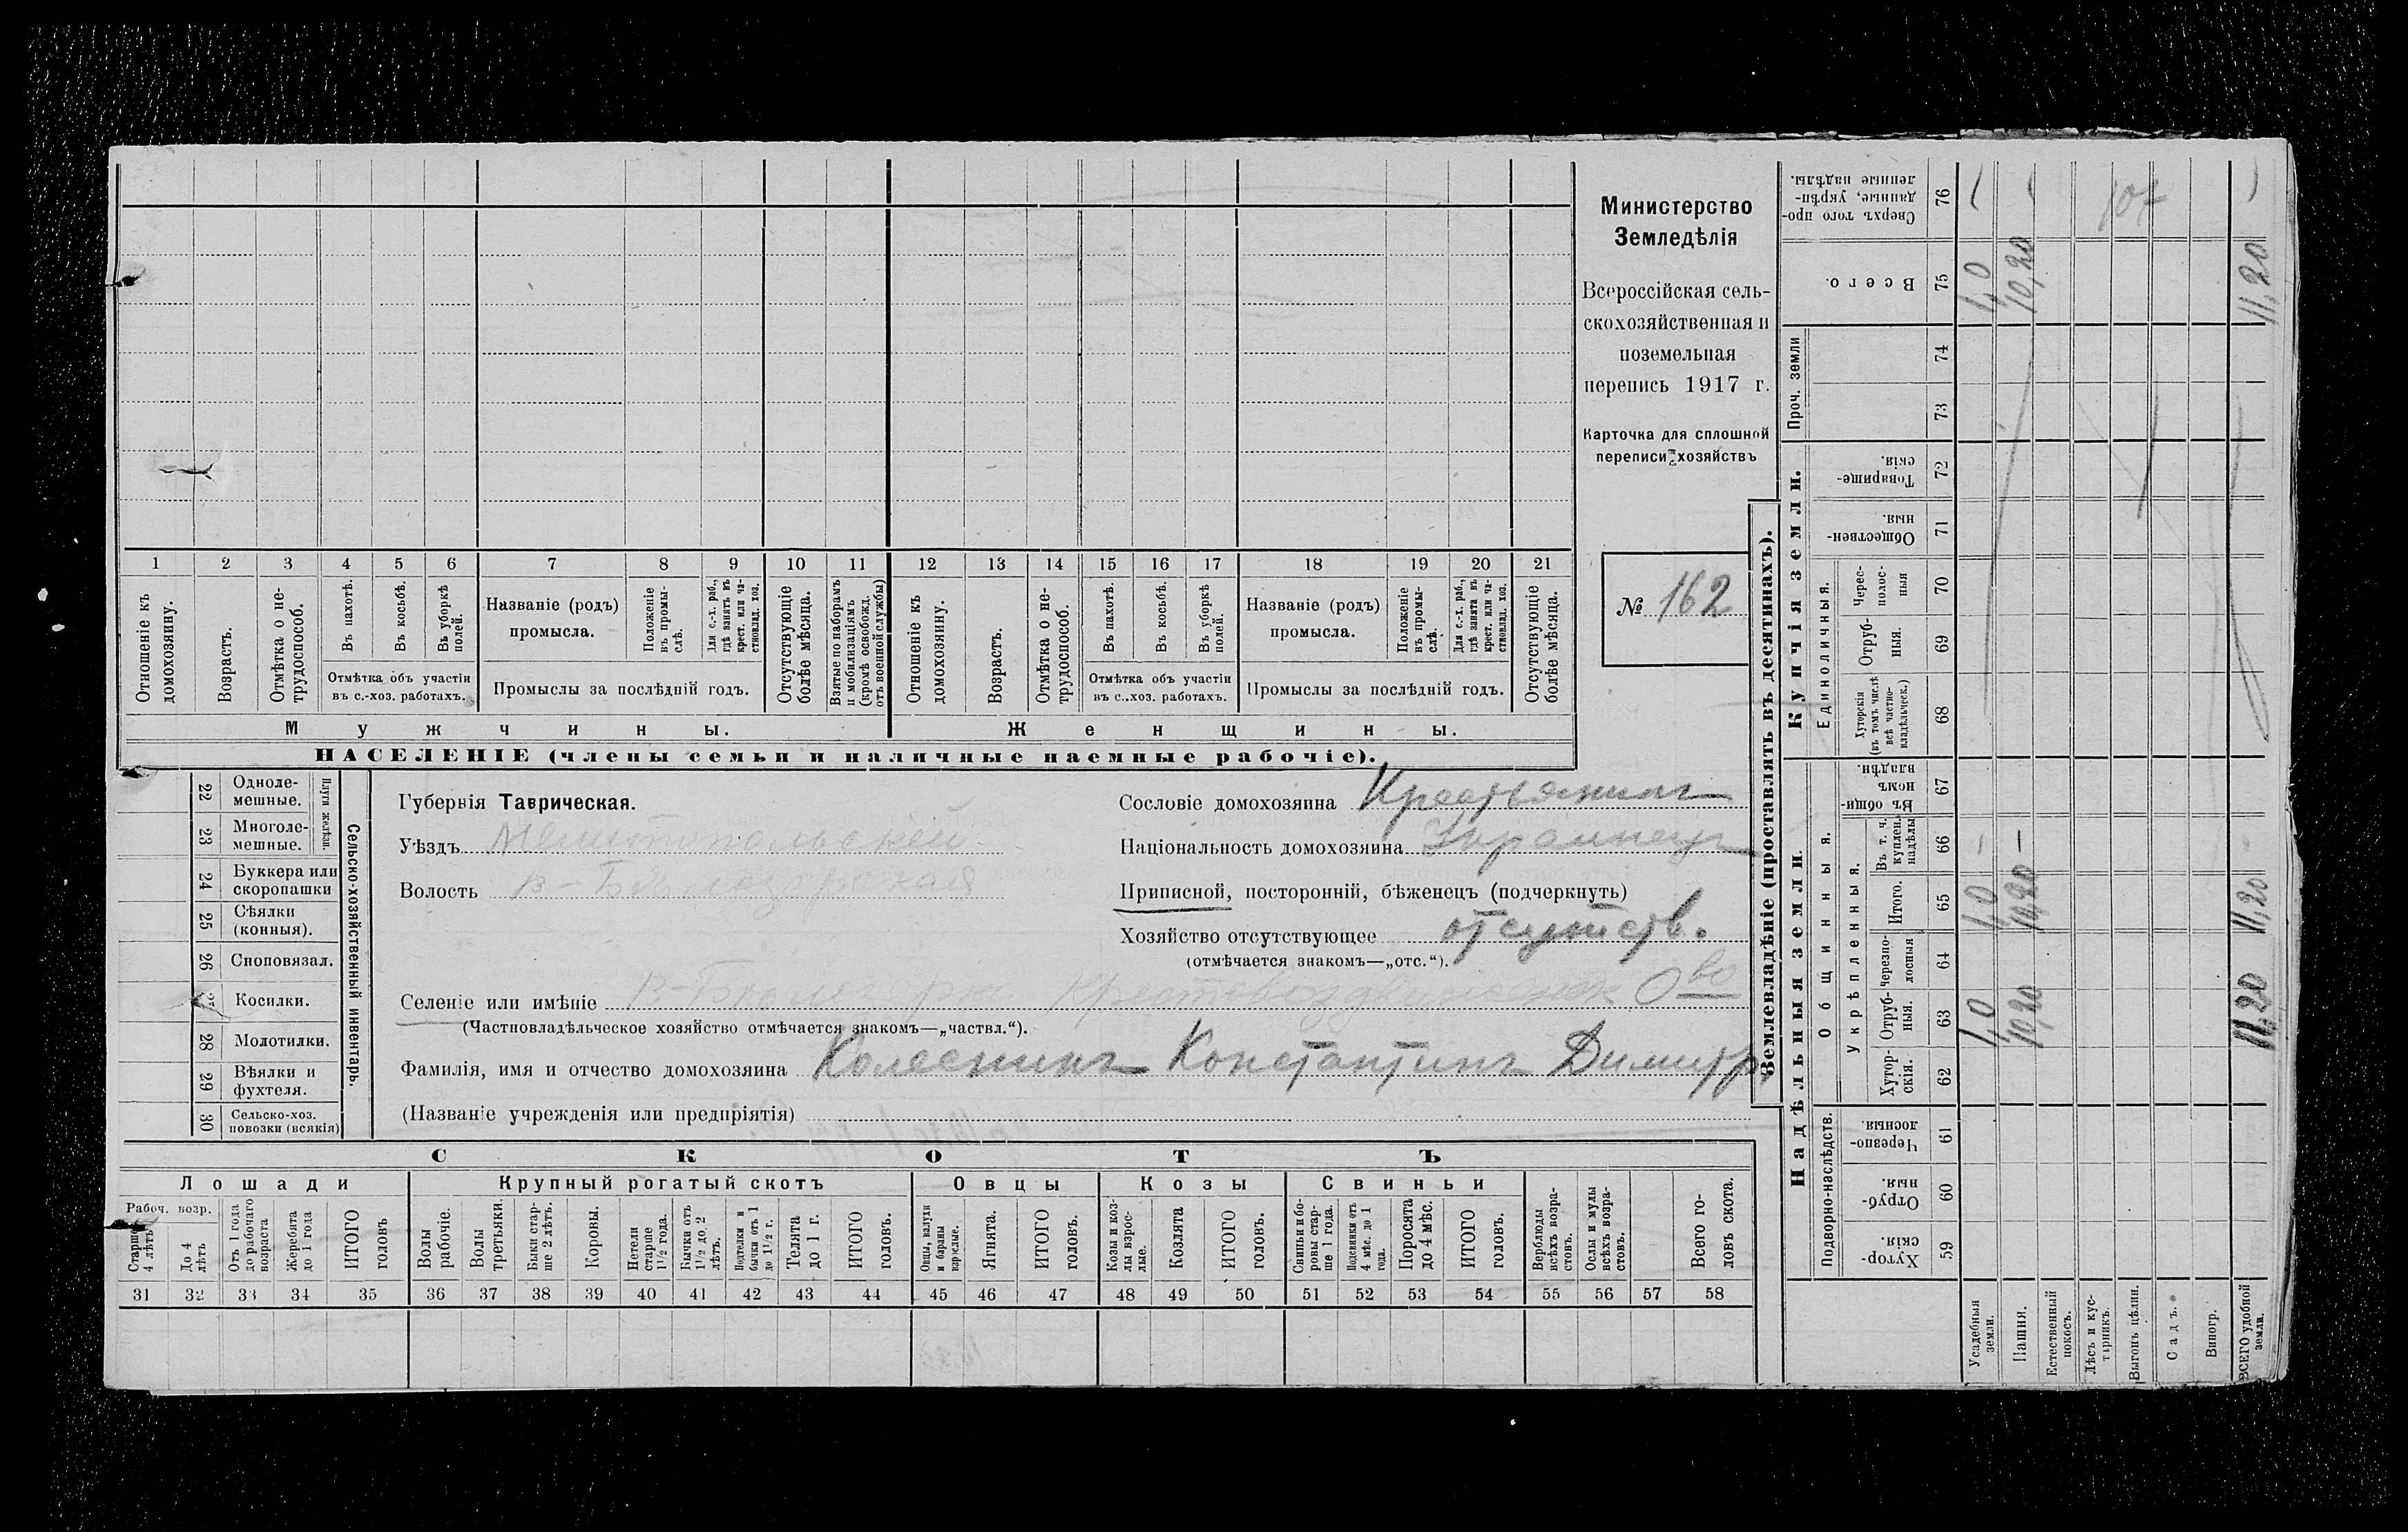 Министерство
Земледѣлія
Всероссійская сель-
скохозяйственная и
поземельная
перепись 1917 г.
Карточка для сплошной
переписи хозяйствъ
№ 162
1 2 3 4 5 6 7 8 9 10 11 12 13 14 15 16 17 18 19 20 21
Отношеніе къ
домохозяину.
Возрастъ.
Отмѣтка о не-
трудоспособ.
Въ пахотѣ.
Въ косьбѣ.
Въ уборкѣ
полей.
Отмѣтка объ участіи
въ с.-хоз. работахъ.
Названіе (родъ)
промысла.
Положеніе
въ промы-
слѣ.
Для с.-х. раб.,
гдѣ занятъ въ
крест. или ча-
стновлад. хоз.
Промыслы за послѣдній годъ.
Отсутствующіе
болѣе мѣсяца.
Взятые по наборамъ
и мобилизаціямъ
(кромѣ освобожд.
отъ военной службы)
Отношеніе къ
домохозяину.
Возрастъ.
Отмѣтка о не-
трудоспособ.
Въ пахотѣ.
Въ косьбѣ.
Въ уборкѣ
полей.
Отмѣтка объ участіи
въ с.-хоз. работахъ.
Названіе (родъ)
промысла.
Положеніе
въ промы-
слѣ.
Для с.-х. раб.,
гдѣ занята въ
крест. или ча-
стновлад. хоз.
Промыслы за послѣдній годъ.
Отсутствующіе
болѣе мѣсяца.
Мужчины. Женщины.
НАСЕЛЕНІЕ (члены семьи и наличные наемные рабочіе).
22 Одноле-
мешные.
23 Многоле-
мешные.
Плуги желѣзн.
24 Буккера или
скоропашки
25 Сѣялки
(конныя).
26 Сноповязал.
Косилки.
28 Молотилки.
29 Вѣялки и
фухтеля.
30 Сельско-хоз.
повозки (всякія)
Сельско-хозяйственный инвентарь.
Губернія Таврическая.
Уѣздъ Мелитопольскій
Волость В-Бѣлозерская
Сословіе домохозяина Крестьянинъ
Національность домохозяина Украинецъ
Приписной, посторонній, бѣженецъ (подчеркнуть)
Хозяйство отсутствующее отсутств.
(отмѣчается знакомъ—„отс.“).
Селеніе или имѣніе В-Бѣлозерка Крестовоздвиженское О-во
(Частновладѣльческое хозяйство отмѣчается знакомъ—„частвл.“).
Фамилія, имя и отчество домохозяина Колесникъ Константинъ Димитр.
(Названіе учрежденія или предпріятія)
СКОТЪ
Лошади Крупный рогатый скотъ Овцы Козы Свиньи
Рабоч. возр.
Старше
4 лѣтъ
До 4
лѣтъ
Отъ 1 года
до рабочаго
возраста
Жеребята
до 1 года
ИТОГО
головъ
Волы
рабочіе.
Волы
третьяки.
Быки стар-
ше 2 лѣтъ.
Коровы.
Нетели
старше
1½ года.
Бычки отъ
1½ до 2
лѣтъ.
Подтелки и
бычки отъ 1
до 1½ г.
Телята
до 1 г.
ИТОГО
головъ.
Овцы, валухи
и бараны
взрослые.
Ягнята.
ИТОГО
головъ.
Козы и коз-
лы взрос-
лые.
Козлята
ИТОГО
головъ.
Свиньи и бо-
ровы стар-
ше 1 года.
Подсвинки отъ
4 мѣс. до 1
года.
Поросята
до 4 мѣс.
ИТОГО
головъ.
Верблюды
всѣхъ возра-
стовъ.
Ослы и мулы
всѣхъ возра-
стовъ.
Всего го-
ловъ скота.
31 32 33 34 35 36 37 38 39 40 41 42 43 44 45 46 47 48 49 50 51 52 53 54 55 56 57 58
Землевладѣніе (проставлять въ десятинахъ).
Надѣльныя земли. Купчія земли. Проч. земли
Подворно-наслѣдств.
Общинныя.
Укрѣпленныя.
Единоличныя.
Сверхъ того про-
данные, укрѣп-
ленные надѣлы.
76
Всего. 75
74
73
Товарище-
скія. 72
Обществен-
ныя. 71
Черес-
полос-
ныя 70
Отруб-
ныя. 69
Хуторскія
(въ томъ числѣ
всѣ частно-
владѣльческ.) 68
Въ общи-
номъ
владѣн. 67
Въ т. ч.
куплен.
надѣлы 66
Итого. 65
Черезпо-
лосныя 64
Отруб-
ныя. 63
Хутор-
скія. 62
Черезпо-
лосныя. 61
Отруб-
ныя. 60
Хутор-
скія. 59
Усадебныя
земли. 1,0 1,0 1,0
Пашня. 10,20 10,20 10,20
Естественный
покосъ.
Лѣсъ и кус-
тарникъ.
Выгонъ цѣлин.
Садъ.
Виногр.
ВСЕГО удобной
земли. 11,20 11,20 11,20